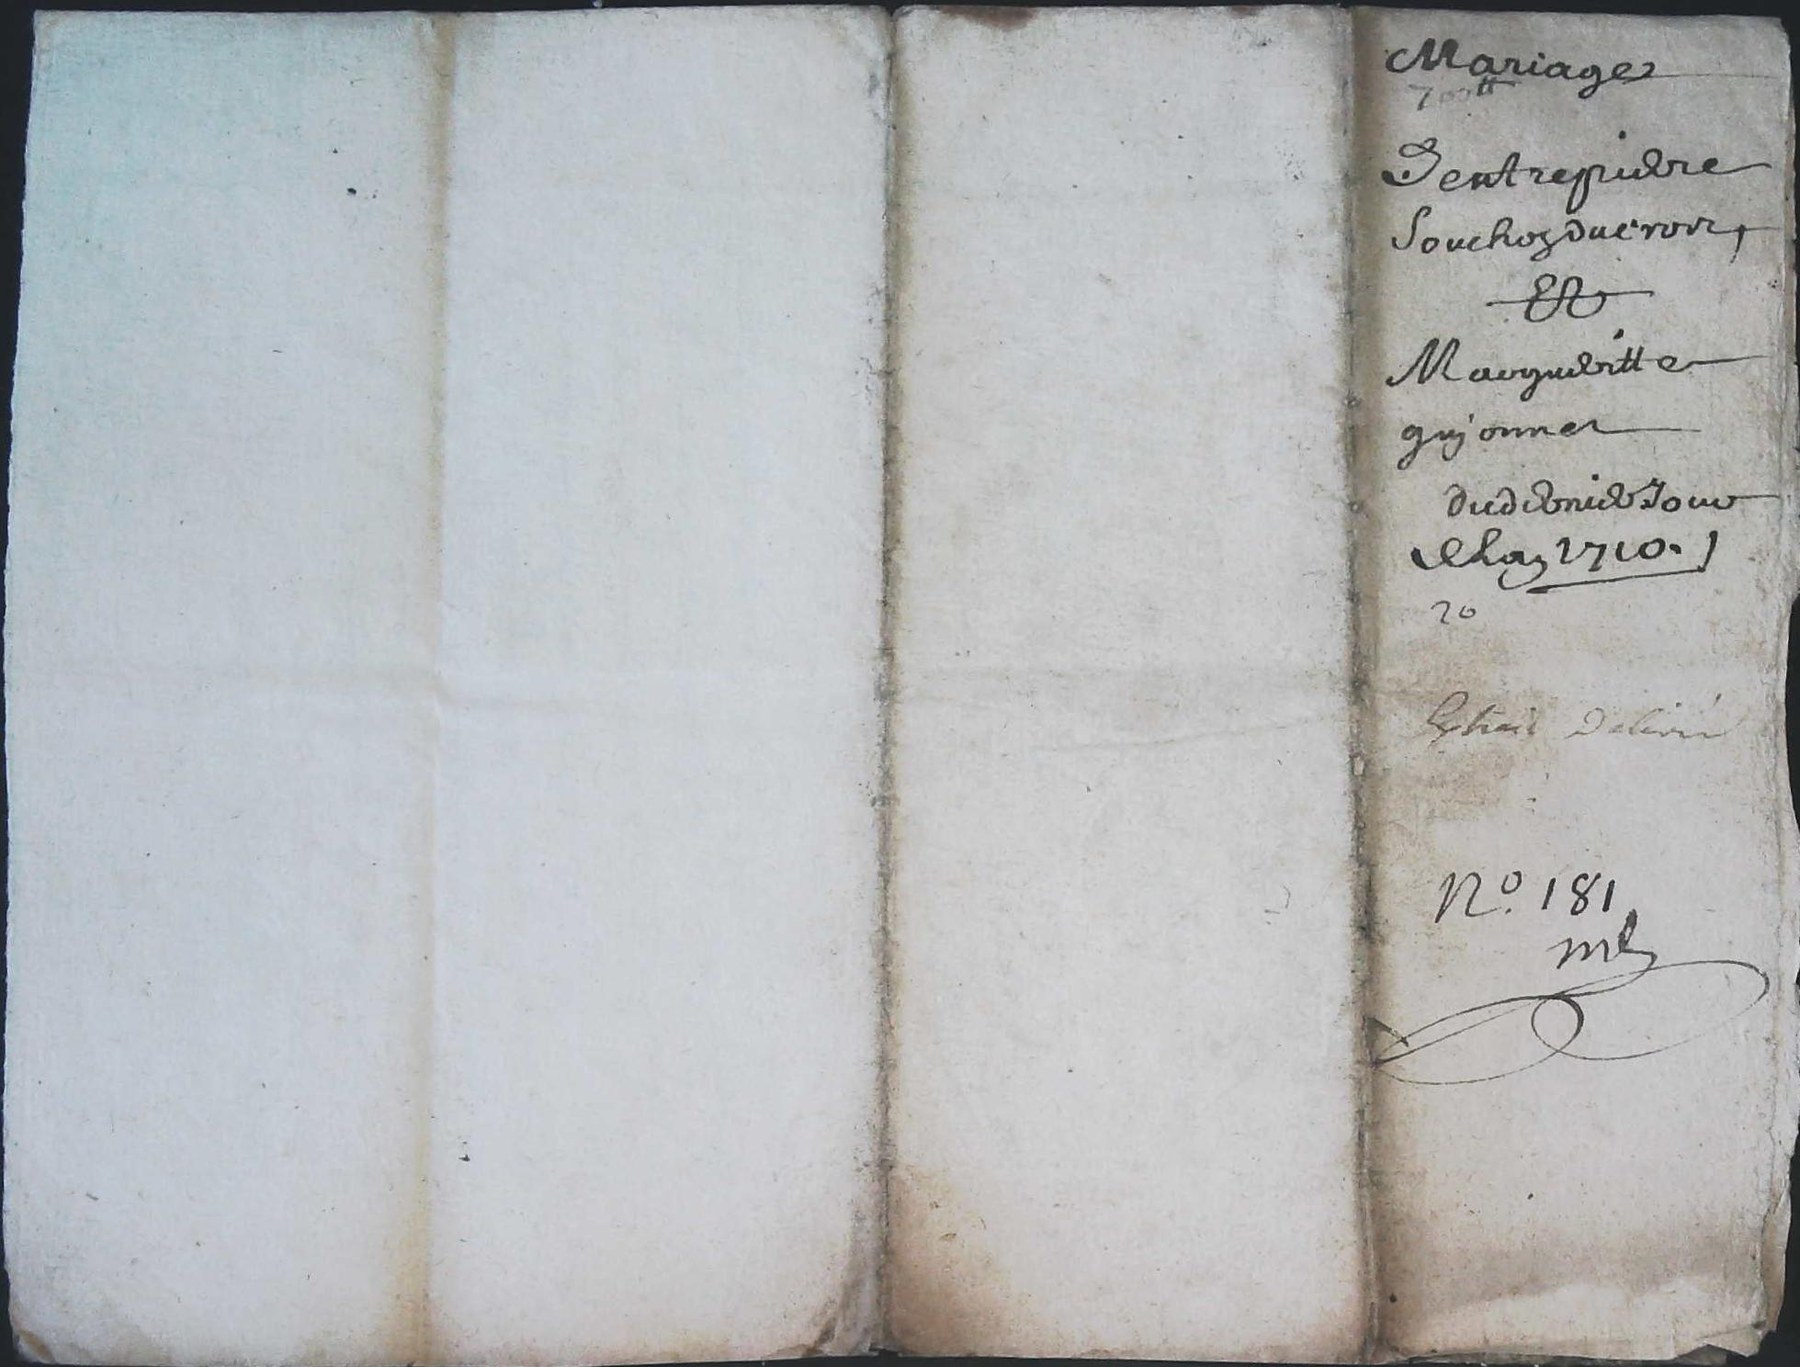 Mariage
700tt
D'entre pierre
Souchoz ducroix,
Et
Margueritte
guÿonnet
du dernier Jour
May 1710.
20
Extrait Delivré
No. 181